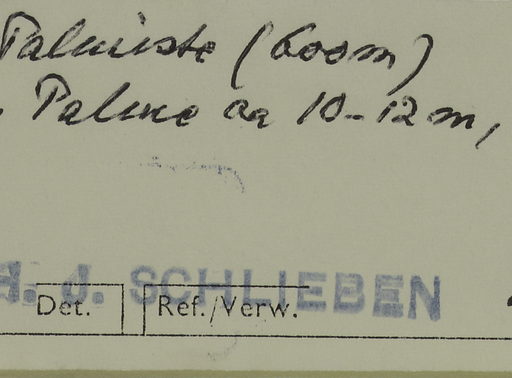 Palmiste (600m)
Palme ca 10-12m,
H. J. SCHLIEBEN
Det. Ref./Verw.